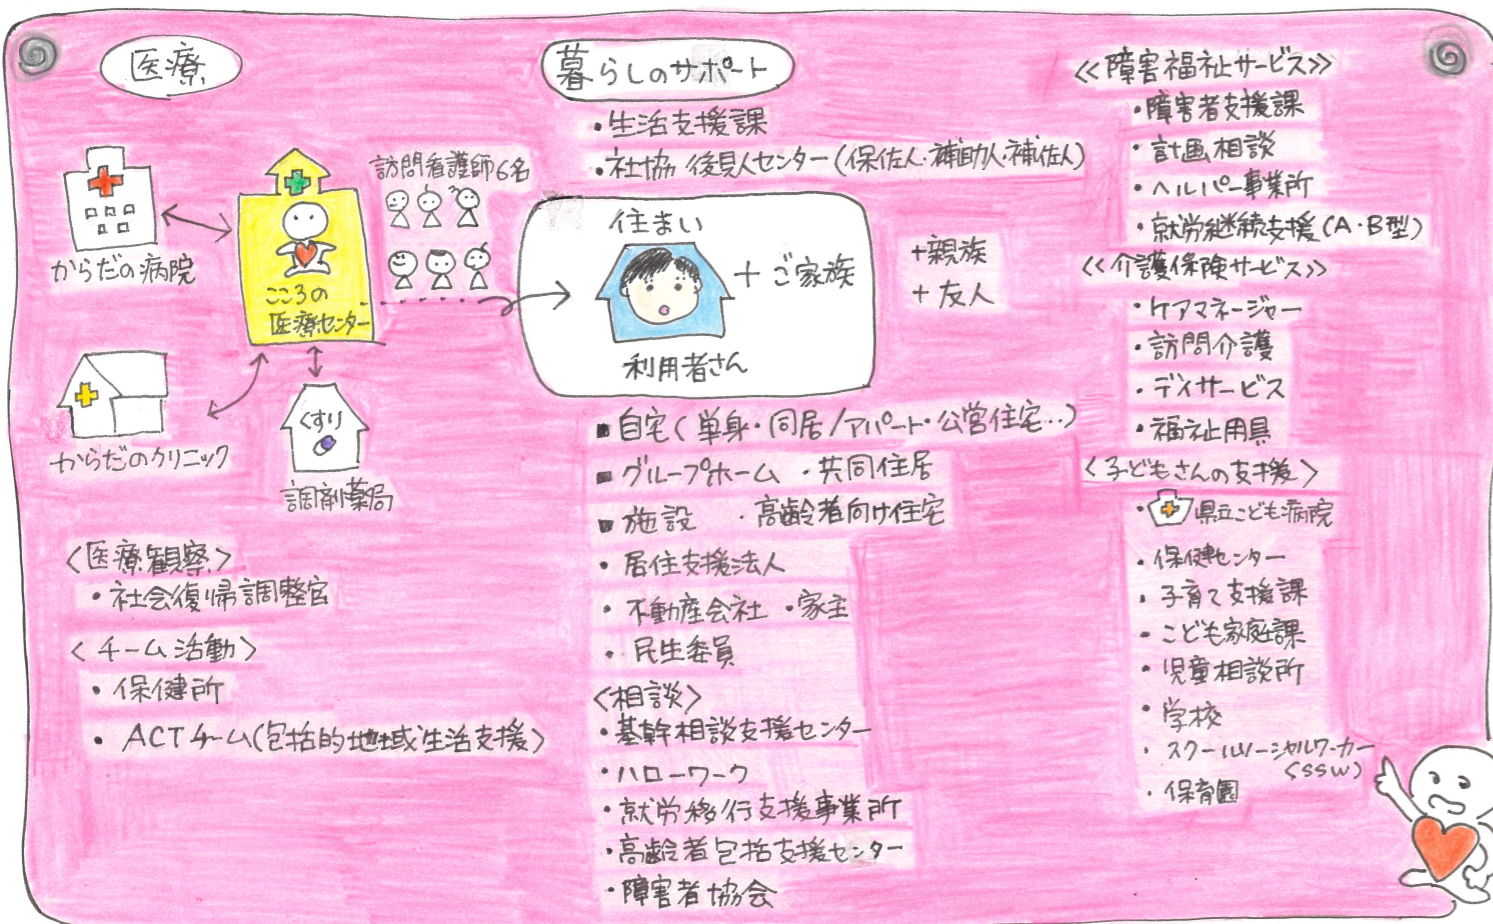 医療
からだの病院
こころの
医療センター
訪問看護師6名
からだのクリニック
くすり
調剤薬局
<医療観察>
・社会復帰調整官
<チーム活動>
・保健所
・ACTチーム(包括的地域生活支援)
暮らしのサポート
・生活支援課
・社協 後見人センター(保佐人・補助人・補佐人)
住まい
+ご家族
利用者さん
+親族
+友人
■自宅(単身・同居/アパート・公営住宅‥)
■グループホーム ・共同住居
■施設 ・高齢者向け住宅
・居住支援法人
・不動産会社 ・家主
・民生委員
<相談>
・基幹相談支援センター
・ハローワーク
・就労移行支援事業所
・高齢者包括支援センター
・障害者協会
≪障害福祉サービス≫
・障害者支援課
・計画相談
・ヘルパー事業所
・就労継続支援(A・B型)
≪介護保険サービス≫
・ケアマネージャー
・訪問介護
・デイサービス
・福祉用具
<子どもさんの支援>
・県立こども病院
・保健センター
・子育て支援課
・こども家庭課
・児童相談所
・学校
・スクールソーシャルワーカー
(SSW)
・保育園